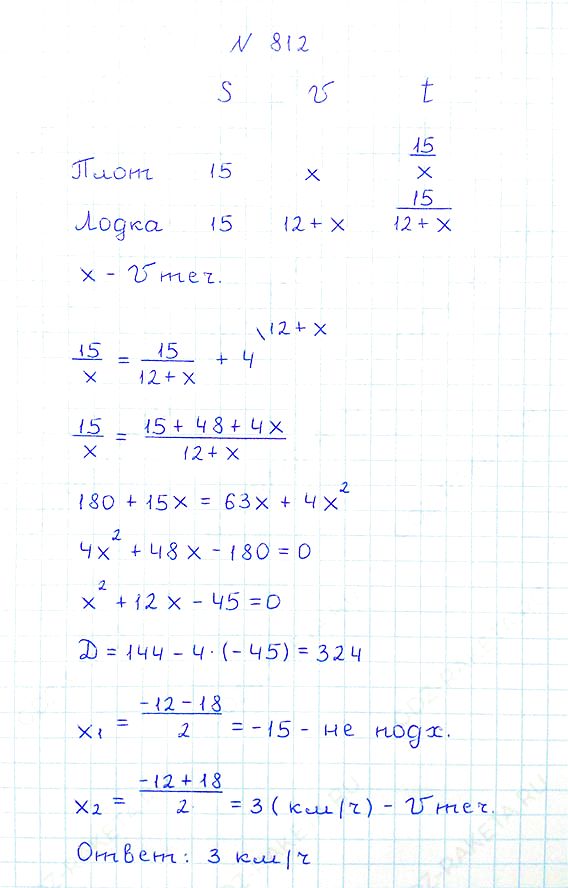 N 812
S v t
Плот 15 x 15/x
Лодка 15 12 + x 15/(12 + x)
x - v теч.
15/x = 15/(12 + x) + 4 \12 + x
15/x = (15 + 48 + 4x)/(12 + x)
180 + 15x = 63x + 4x²
4x² + 48x - 180 = 0
x² + 12x - 45 = 0
Д = 144 - 4·(-45) = 324
x₁ = (-12 - 18)/2 = -15 - не подх.
x₂ = (-12 + 18)/2 = 3 (км/ч) - v теч.
Ответ: 3 км/ч